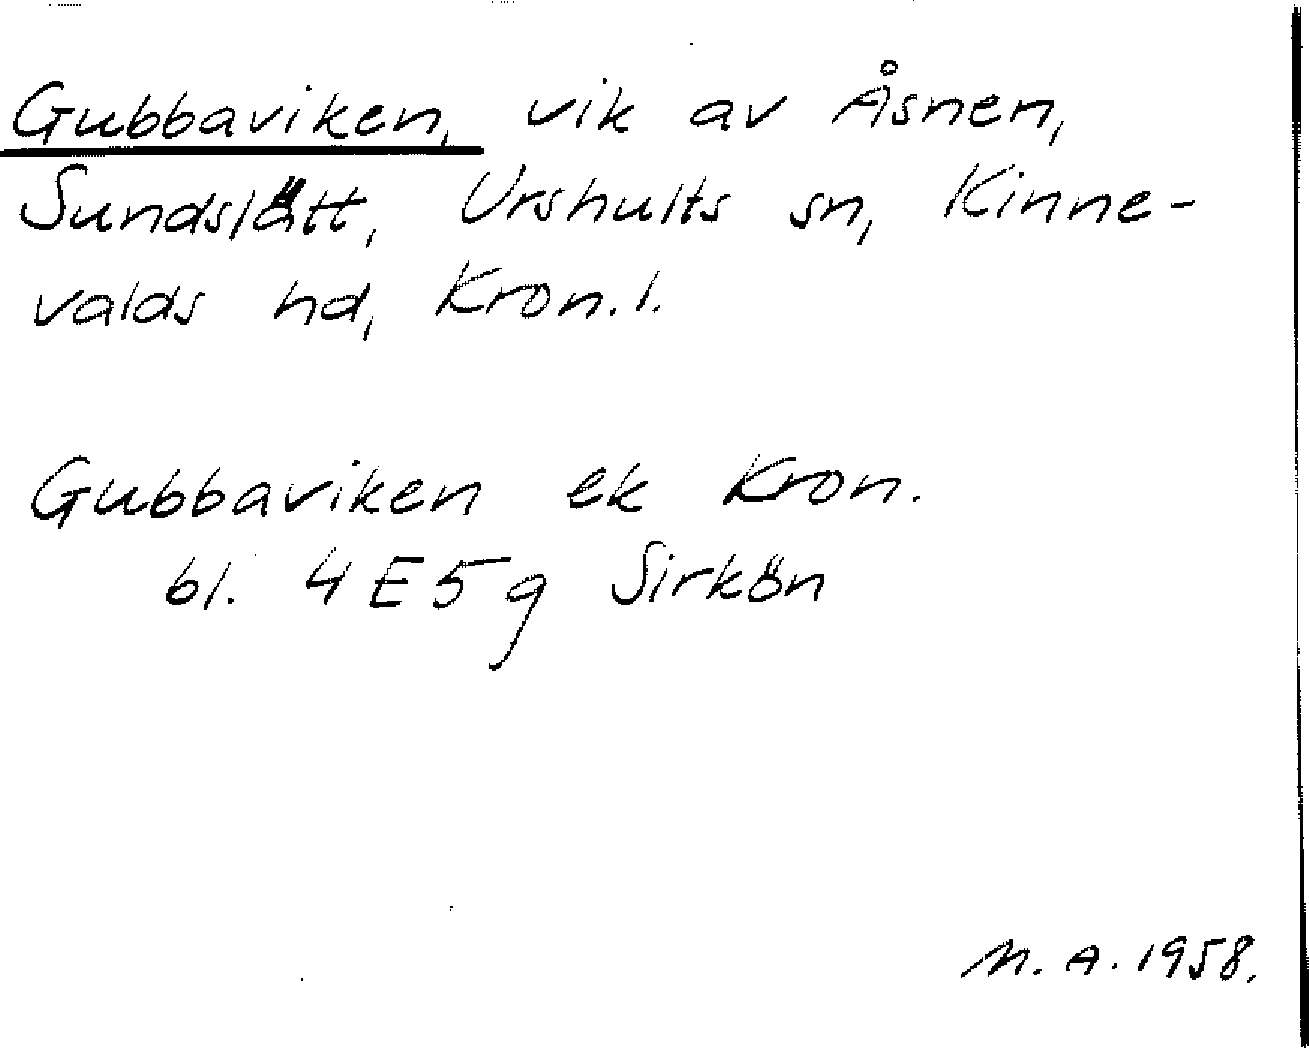 Gubbaviken, vik av Åsnen,
Sundslätt, Urshults sn, Kinne-
valds hd, Kron. l.
Gubbaviken ek Kron.
bl. 4E5g Sirkön
M. A. 1958.